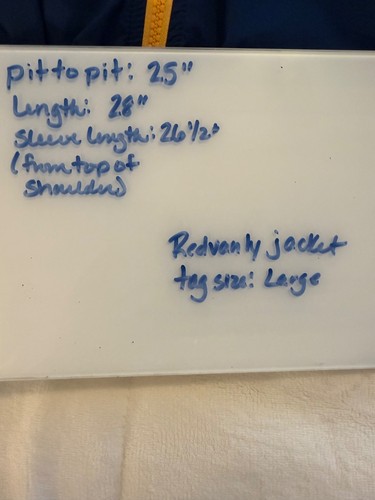 pit to pit: 25"
Length: 28"
Sleeve length: 26 1/2"
(from top of
shoulder)
Redvanly jacket
tag size: Large